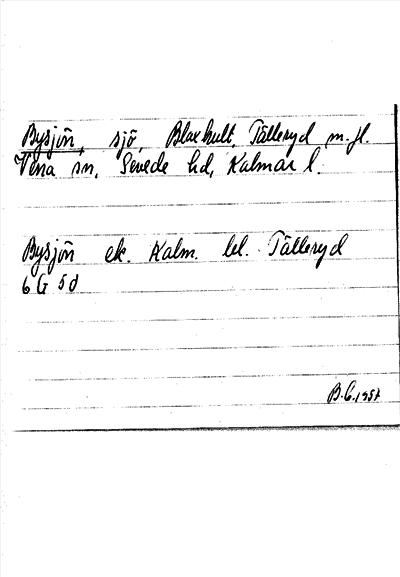 Bysjön, sjö, Blaxhult, Tälleryd m.fl.
Vena sn, Sevede hd, Kalmar l.
Bysjön ek. Kalm. bl. Tälleryd
6 G 5 d
B.G. 1957